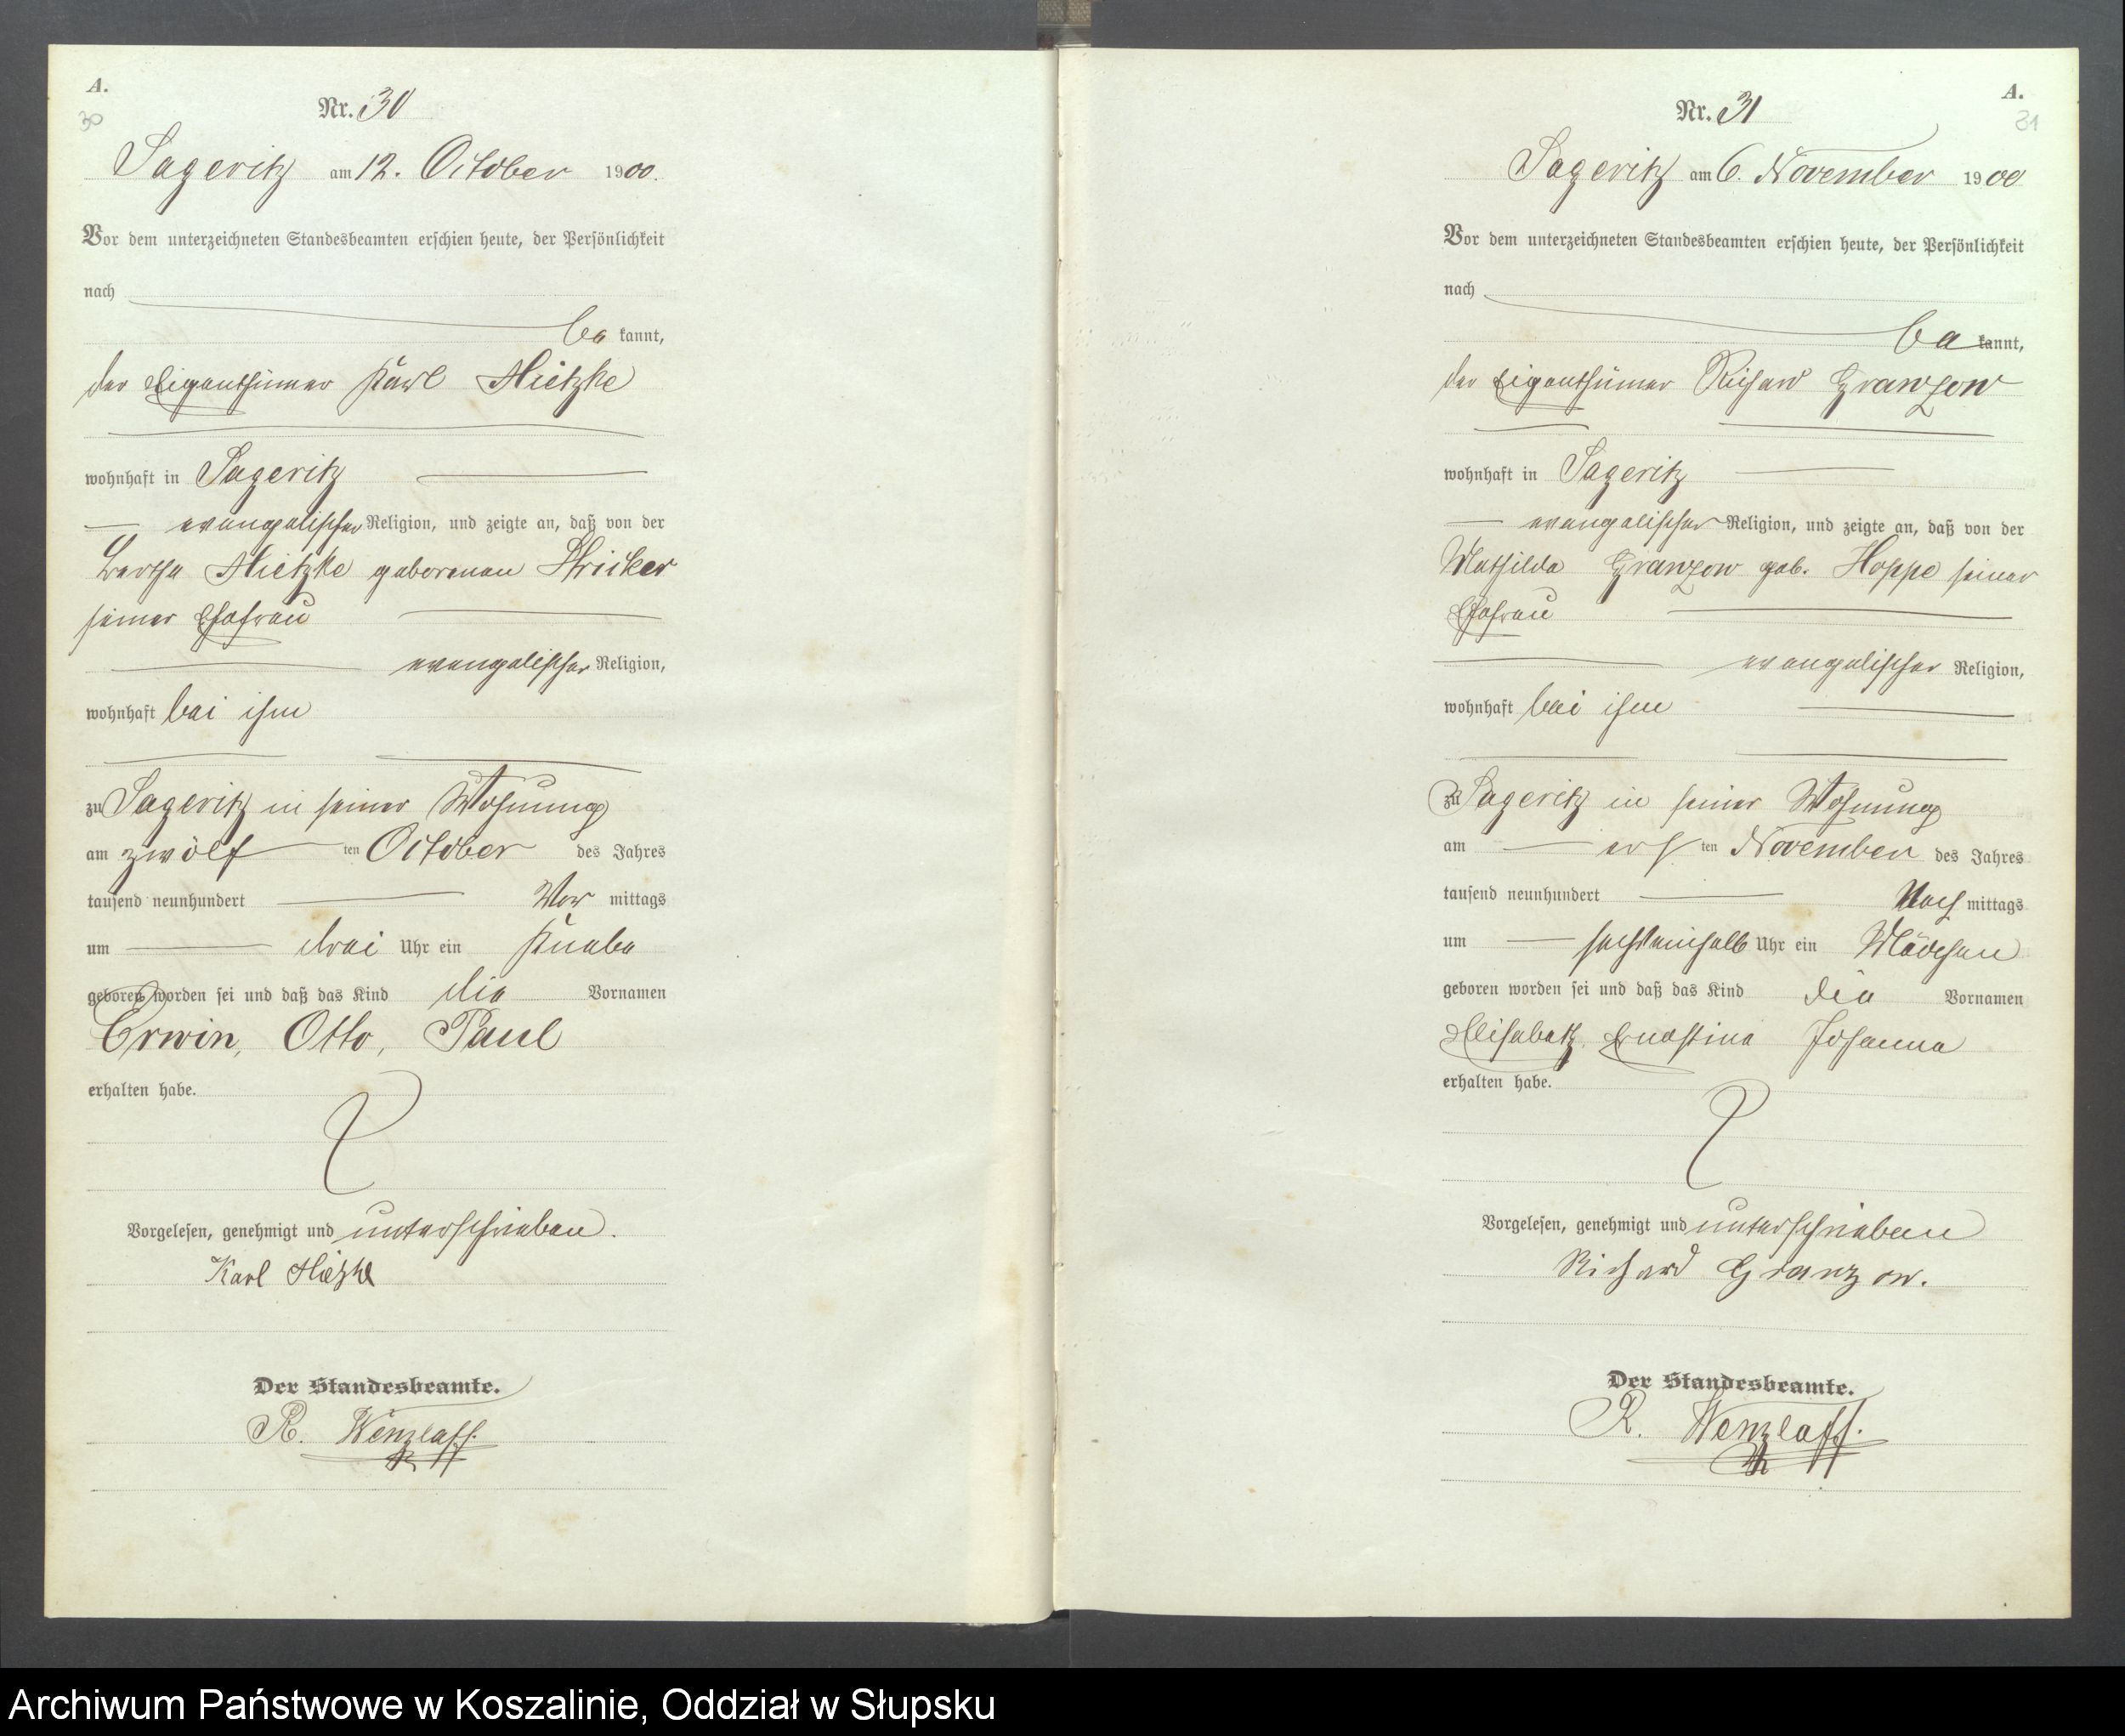 A.
30
Nr. 30
Sageritz am 12. October 1900.
Vor dem unterzeichneten Standesbeamten erschien heute, der Persönlichkeit
nach
be kannt,
der Eigenthümer Karl Mietzke
wohnhaft in Sageritz
evangelischer Religion, und zeigte an, daß von der
Bertha Mietzke geborenen Stricker
seiner Ehefrau
evangelischer Religion,
wohnhaft bei ihm
zu Sageritz in seiner Wohnung
am zwölf ten October des Jahres
tausend neunhundert Vor mittags
um drei Uhr ein Knabe
geboren worden sei und daß das Kind die Vornamen
Erwin, Otto, Paul
erhalten habe.
Vorgelesen, genehmigt und unterschrieben.
Karl Mietzke
Der Standesbeamte.
R. Wenzlaff.
A.
31
Nr. 31
Sageritz am 6. November 1900
Vor dem unterzeichneten Standesbeamten erschien heute, der Persönlichkeit
nach
be kannt,
der Eigenthümer Richard Granzow
wohnhaft in Sageritz
evangelischer Religion, und zeigte an, daß von der
Mathilde Granzow geb. Hoppe seiner
Ehefrau
evangelischer Religion,
wohnhaft bei ihm
zu Sageritz in seiner Wohnung
am ers ten November des Jahres
tausend neunhundert Nach mittags
um Uhr ein Mädchen
geboren worden sei und daß das Kind die Vornamen
Elisabeth Ernestine Johanna
erhalten habe.
Vorgelesen, genehmigt und unterschrieben
Richard Granzow.
Der Standesbeamte.
R. Wenzlaff.
Archiwum Państwowe w Koszalinie, Oddział w Słupsku